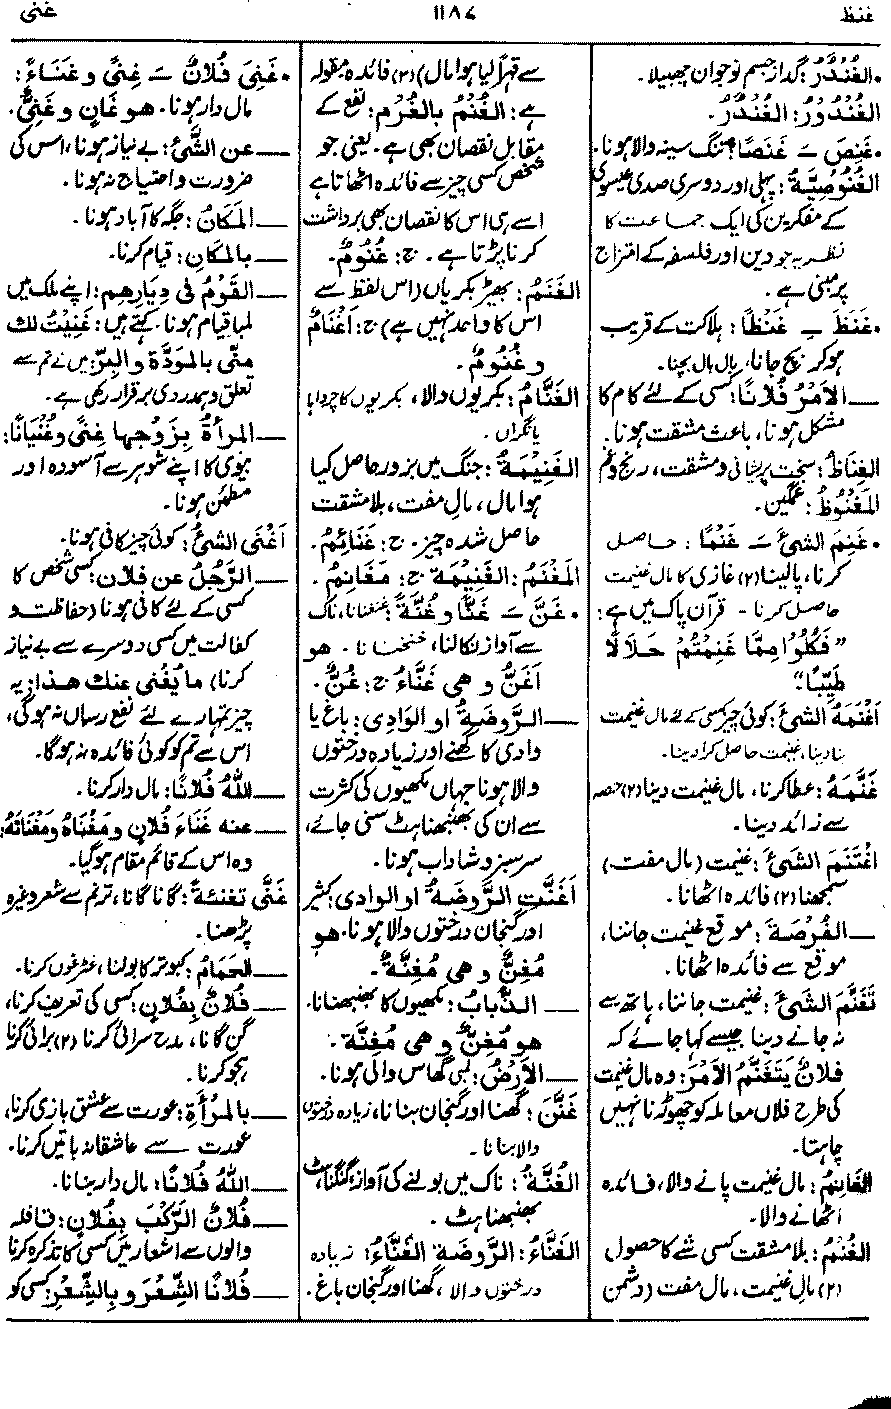 غنظ
۱۱۸۷
غنی
• الغُنْدُرُ: گداز جسم نوجوان چھبیلا۔
الغُنْدُورُ: الغُنْدُرُ۔
• غَنِصَ ـَـ غَنَصًا: تنگ سینہ والا ہونا۔
الغُنُوصِيَّةُ: پہلی اور دوسری صدی عیسوی
کے مفکرین کی ایک جماعت کا
نظریہ جو دین اور فلسفہ کے امتزاج
پر مبنی ہے۔
• غَنَظَ ـِـ غَنْظًا: ہلاکت کے قریب
ہو کر بچ جانا، بال بال بچنا۔
ــ الاَمْرُ فُلَانًا: کسی کے لئے کام کا
مشکل ہونا، باعث مشقت ہونا۔
الغِنَاظُ: سخت پریشانی و مشقت، رنج و غم
المَغْنُوظُ: غمگین۔
• غَنِمَ الشیءَ ـَـ غَنْمًا: حاصل
کرنا، پالینا (۲) غازی کا مال غنیمت
حاصل کرنا ۔ قرآن پاک میں ہے:
”فَكُلُوْا مِمَّا غَنِمْتُمْ حَلَالًا
طَيِّبًا“
اَغْنَمَهُ الشیءَ: کوئی چیز کسی کے لئے مال غنیمت
بنا دینا، غنیمت حاصل کرا دینا۔
غَنَّمَهُ: عطا کرنا، مال غنیمت دینا (۲) حصہ
سے زائد دینا۔
اغْتَنَمَ الشیءَ: غنیمت (مال مفت)
سمجھنا (۲) فائدہ اٹھانا۔
ــ الفُرْصَةَ: موقع غنیمت جاننا،
موقع سے فائدہ اٹھانا۔
تَغَنَّمَ الشیءَ: غنیمت جاننا، ہاتھ سے
نہ جانے دینا جیسے کہا جائے کہ
فلانٌ يَتَغَنَّمُ الاَمْرَ: وہ مال غنیمت
کی طرح فلاں معاملہ کو چھوڑنا نہیں
چاہتا۔
الغَانِمُ: مال غنیمت پانے والا، فائدہ
اٹھانے والا۔
الغُنْمُ: بلا مشقت کسی شئے کا حصول
(۲) مالِ غنیمت، مال مفت (دشمن
سے قہراً لیا ہوا مال) (۳) فائدہ مقولہ
ہے: الغُنْمُ بالغُرْمِ: نفع کے
مقابل نقصان بھی ہے۔ یعنی جو
شخص کسی چیز سے فائدہ اٹھاتا ہے
اسے ہی اس کا نقصان بھی برداشت
کرنا پڑتا ہے۔ ج: غُنُومٌ۔
الغَنَمُ: بھیڑ بکریاں (اس لفظ سے
اس کا واحد نہیں ہے) ج: اَغْنَامٌ
وغُنُومٌ۔
الغَنَّامُ: بکریوں والا، بکریوں کا چرواہا
یا نگراں۔
الغَنِيمَةُ: جنگ میں بزور حاصل کیا
ہوا مال، مالِ مفت، بلا مشقت
حاصل شدہ چیز۔ ج: غَنَائِمُ۔
المَغْنَمُ: الغَنِيمَة ج: مَغَانِمُ۔
• غَنَّ ـَـ غَنًّا وغُنَّةً: غنغنانا، ناک
سے آواز نکالنا، خنخنانا۔ هو
اَغَنُّ و هي غَنَّاءُ ج: غُنٌّ۔
ــ الرَّوضَةُ او الوَادِی: باغ یا
وادی کا گھنے اور زیادہ درختوں
والا ہونا جہاں مکھیوں کی کثرت
سے ان کی بھنبھناہٹ سنی جائے،
سرسبز و شاداب ہونا۔
اَغَنَّتِ الرَّوضَةُ او الوادی: کثیر
اور گنجان درختوں والا ہونا۔ هو
مُغِنٌّ و هي مُغِنَّةٌ۔
ــ الذُّبابُ: مکھیوں کا بھنبھنانا۔
هو مُغِنٌّ و هي مُغِنَّة۔
ــ الاَرْضُ: لمبی گھاس والی ہونا۔
غَنَّنَ: گھنا اور گنجان بنانا، زیادہ درختوں
والا بنانا۔
الغُنَّةُ: ناک میں بولنے کی آواز، گنگناہٹ
بھنبھناہٹ۔
الغَنَّاءُ: الرَّوضَة الغَنَّاءُ: زیادہ
درختوں والا، گھنا اور گنجان باغ۔
• غَنِيَ فُلَانٌ ـَـ غِنًی و غَنَاءً:
مال دار ہونا۔ هو غَانٍ و غَنِیٌّ۔
ــ عن الشَّیءِ: بے نیاز ہونا، اس کی
ضرورت و احتیاج نہ ہونا۔
ــ المَكَانُ: جگہ کا آباد ہونا۔
ــ بالمَكَانِ: قیام کرنا۔
ــ القَوْمُ فی دِيَارِهِم: اپنے ملک میں
لمبا قیام ہونا۔ کہتے ہیں: غَنِيْتُ لك
منّی بالمَوَدَّة والبِرّ: میں نے تم سے
تعلق و ہمدردی برقرار رکھی ہے۔
ــ المرأةُ بِزَوْجِها غِنًی وغُنْيَانًا:
بیوی کا اپنے شوہر سے آسودہ اور
مطمئن ہونا۔
اَغْنَی الشیءُ: کوئی چیز کافی ہونا۔
ــ الرَّجُلُ عن فلان: کسی شخص کا
کسی کے لئے کافی ہونا (حفاظت و
کفالت میں کسی دوسرے سے بے نیاز
کرنا) مَا يُغْنِی عنك هذا: یہ
چیز تمہارے لئے نفع رساں نہ ہوگی،
اس سے تم کو کوئی فائدہ نہ ہوگا۔
ــ اللهُ فُلَانًا: مال دار کرنا۔
ــ عنه غَنَاءَ فُلَانٍ ومَغْنَاهُ ومَغْنَاتَهُ:
وہ اس کے قائم مقام ہوگیا۔
غَنَّی تَغْنِئةً: گانا گانا، ترنم سے شعر وغیرہ
پڑھنا۔
ــ الحَمَامُ: کبوتر کا بولنا، غٹرغوں کرنا۔
ــ فُلَانٌ بِفُلَانٍ: کسی کی تعریف کرنا،
گن گانا، مدح سرائی کرنا (۲) برائی کرنا
ہجو کرنا۔
ــ بالمَرْأةِ: عورت سے عشق بازی کرنا،
عورت سے عاشقانہ باتیں کرنا۔
ــ اللهُ فُلَانًا: مال دار بنانا۔
ــ فُلَانٌ الرَّكْبَ بِفُلَانٍ: قافلہ
والوں سے اشعار میں کسی کا تذکرہ کرنا
ــ فُلَانًا الشِّعْرَ و بِالشِّعْرِ: کسی کو